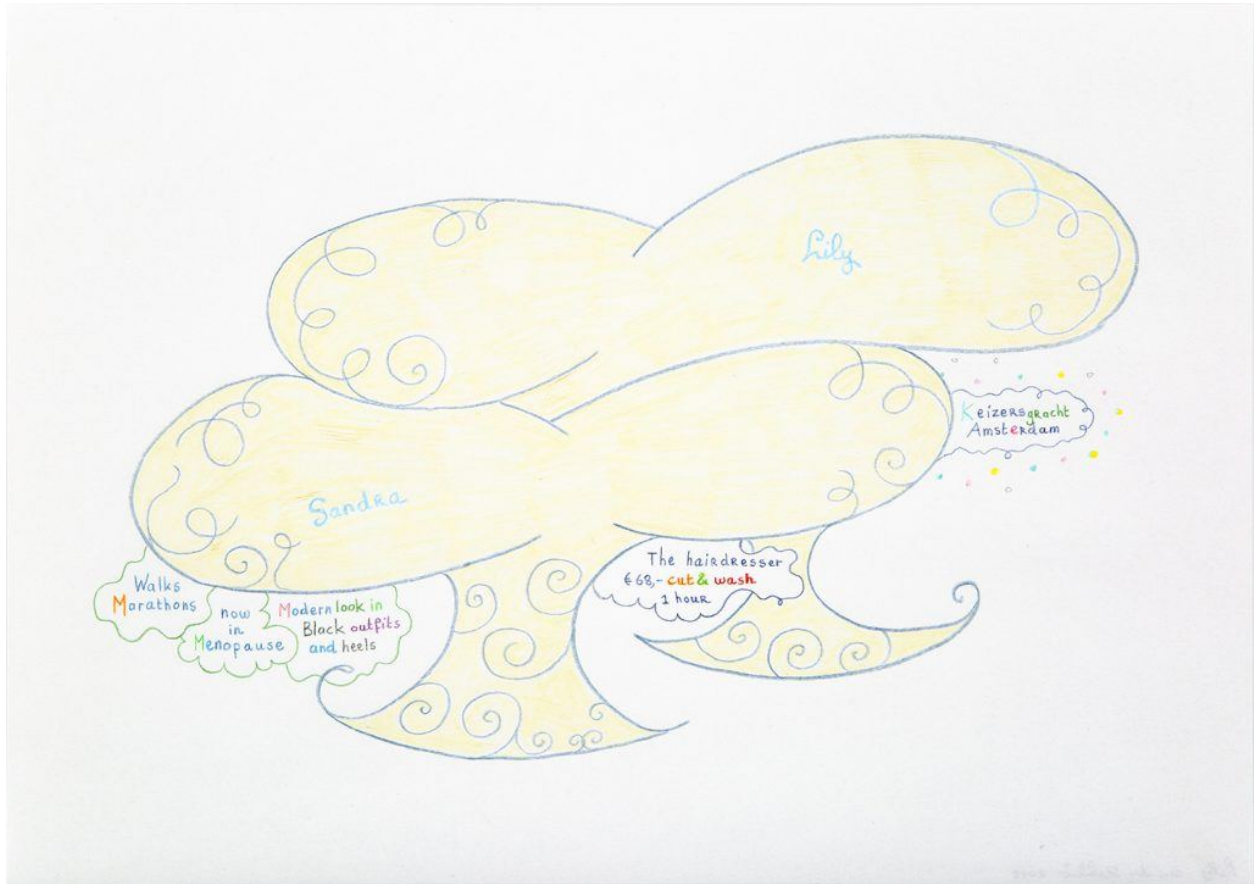 Lily
Keizersgracht
Amsterdam
Sandra
The hairdresser
€68,- cut & wash
1 hour
Walks
Marathons
now
in
Menopause
Modern look in
Black outfits
and heels